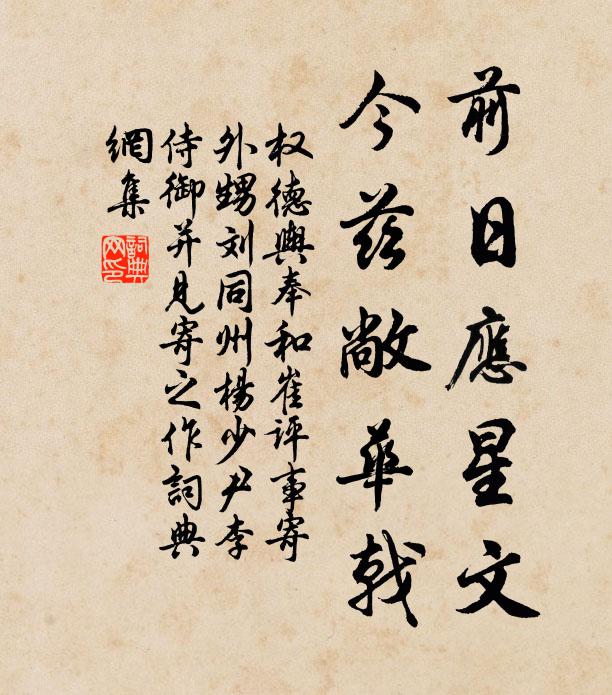 前日應星文
今茲敞華戟
权德輿奉和崔评事寄
外甥刘同州楊少尹李
侍御并見寄之作詞典
網集
詞典网印